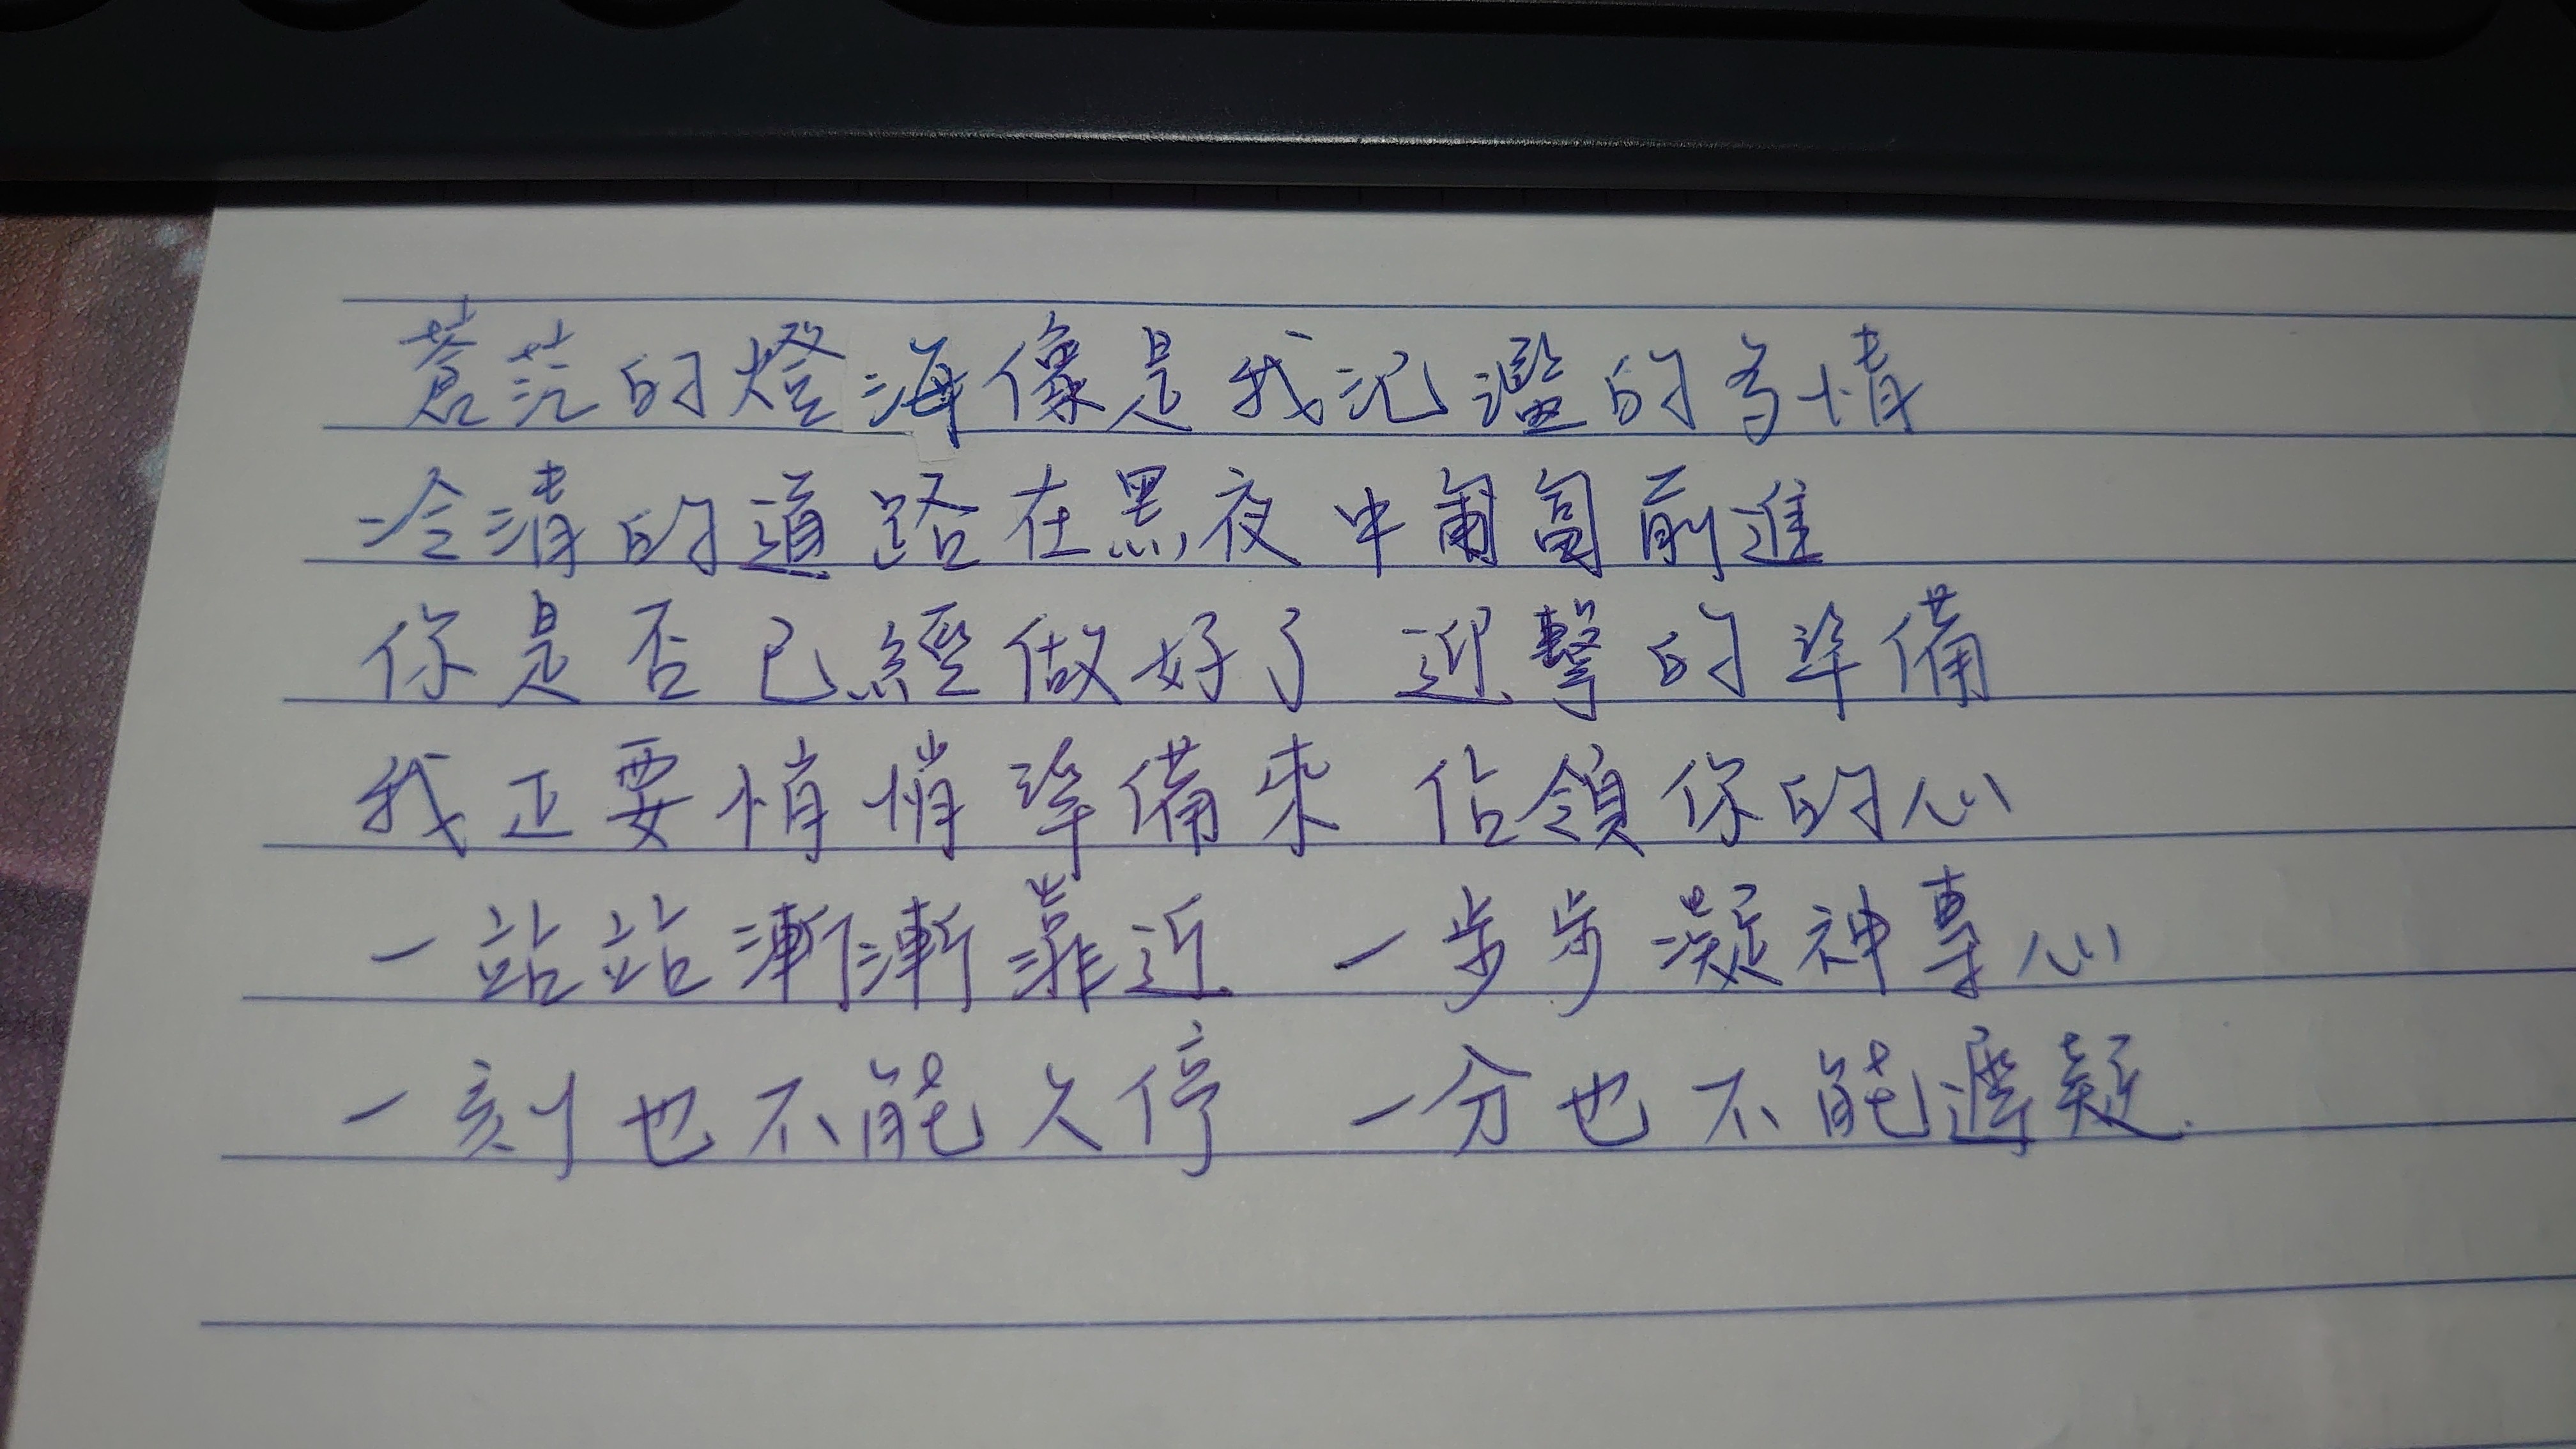 蒼茫的燈海像是我氾濫的多情
冷清的道路在黑夜中匍匐前進
你是否已經做好了 迎擊的準備
我正要悄悄準備來 佔領你的心
一站站漸漸靠近 一步步凝神專心
一刻也不能久停 一分也不能遲疑